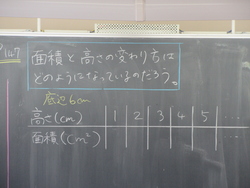 P147
面積と高さの変わり方は
どのようになっているのだろう。
底辺6cm
高さ(cm) 1 2 3 4 5 ...
面積(cm²) ...